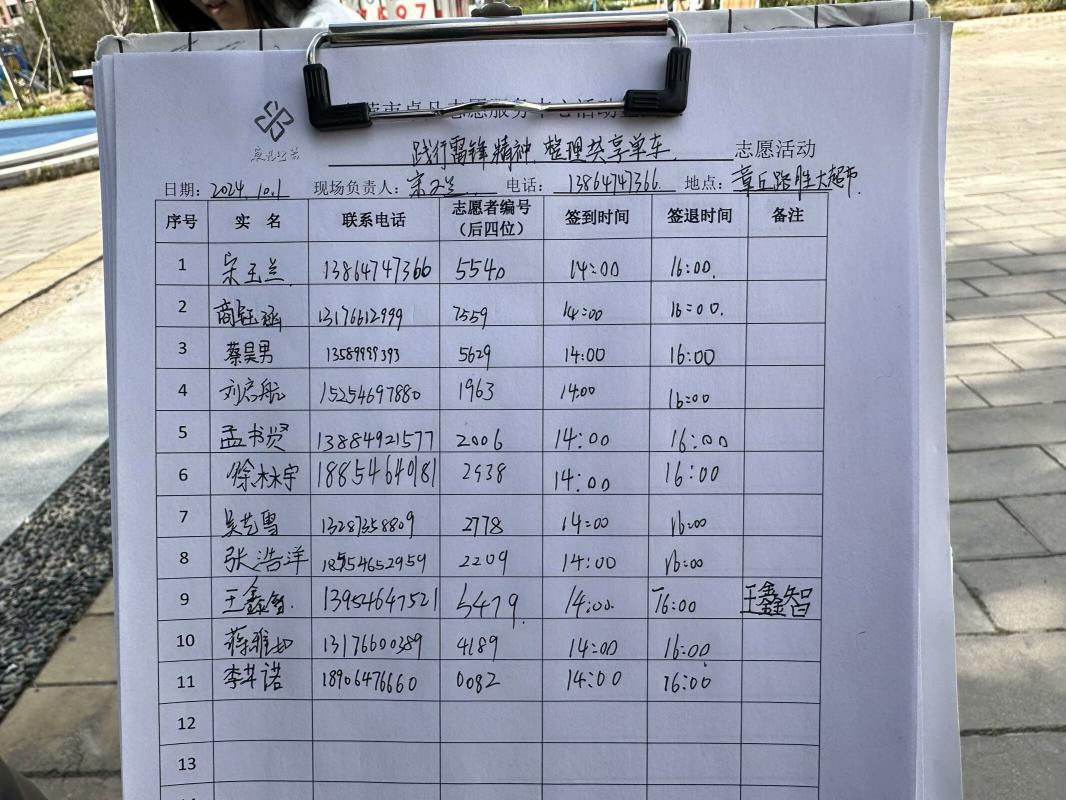 营市卓凡志愿服务中心活动
践行雷锋精神,整理共享单车. 志愿活动
日期: 2024.10.1 现场负责人: 宋玉兰. 电话: 13864747366. 地点: 章丘路胜大超市.
序号 实 名 联系电话 志愿者编号(后四位) 签到时间 签退时间 备注
1 宋玉兰. 13864747366 5540 14:00 16:00.
2 商钰涵 13176612999 7559 14:00 16:00.
3 蔡昊男 13589999393 5629 14:00 16:00
4 刘启航 15254697880 1963 14:00 16:00
5 孟书贤 13884921577 2006 14:00 16:00
6 徐林宇 18854640181 2938 14:00 16:00
7 吴艺雪 13287358809 2778 14:00 16:00
8 张浩洋 18554652959 2209 14:00 16:00
9 王鑫智. 13954647521 5479. 14:00. 16:00 王鑫智
10 蒋雅如 13176600389 4189 14:00 16:00
11 李其诺 18906476660 0082 14:00 16:00
12
13